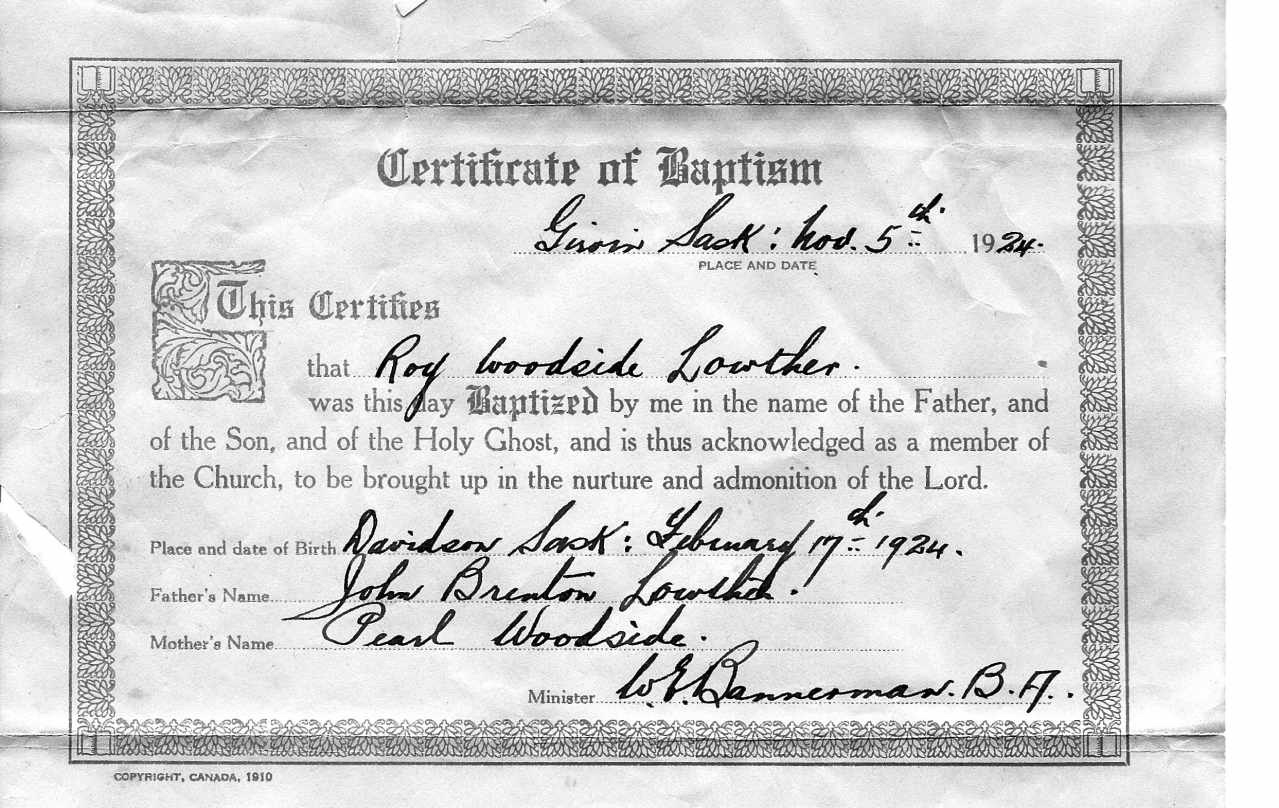 Certificate of Baptism
Girvin Sask: Nov. 5th 1924.
PLACE AND DATE
This Certifies
that Roy Woodside Lowther.
was this day Baptized by me in the name of the Father, and
of the Son, and of the Holy Ghost, and is thus acknowledged as a member of
the Church, to be brought up in the nurture and admonition of the Lord.
Place and date of Birth Davidson Sask: February 17th 1924.
Father's Name John Brenton Lowther.
Mother's Name Pearl Woodside.
Minister W. E. Bannerman. B.A.
COPYRIGHT, CANADA, 1910